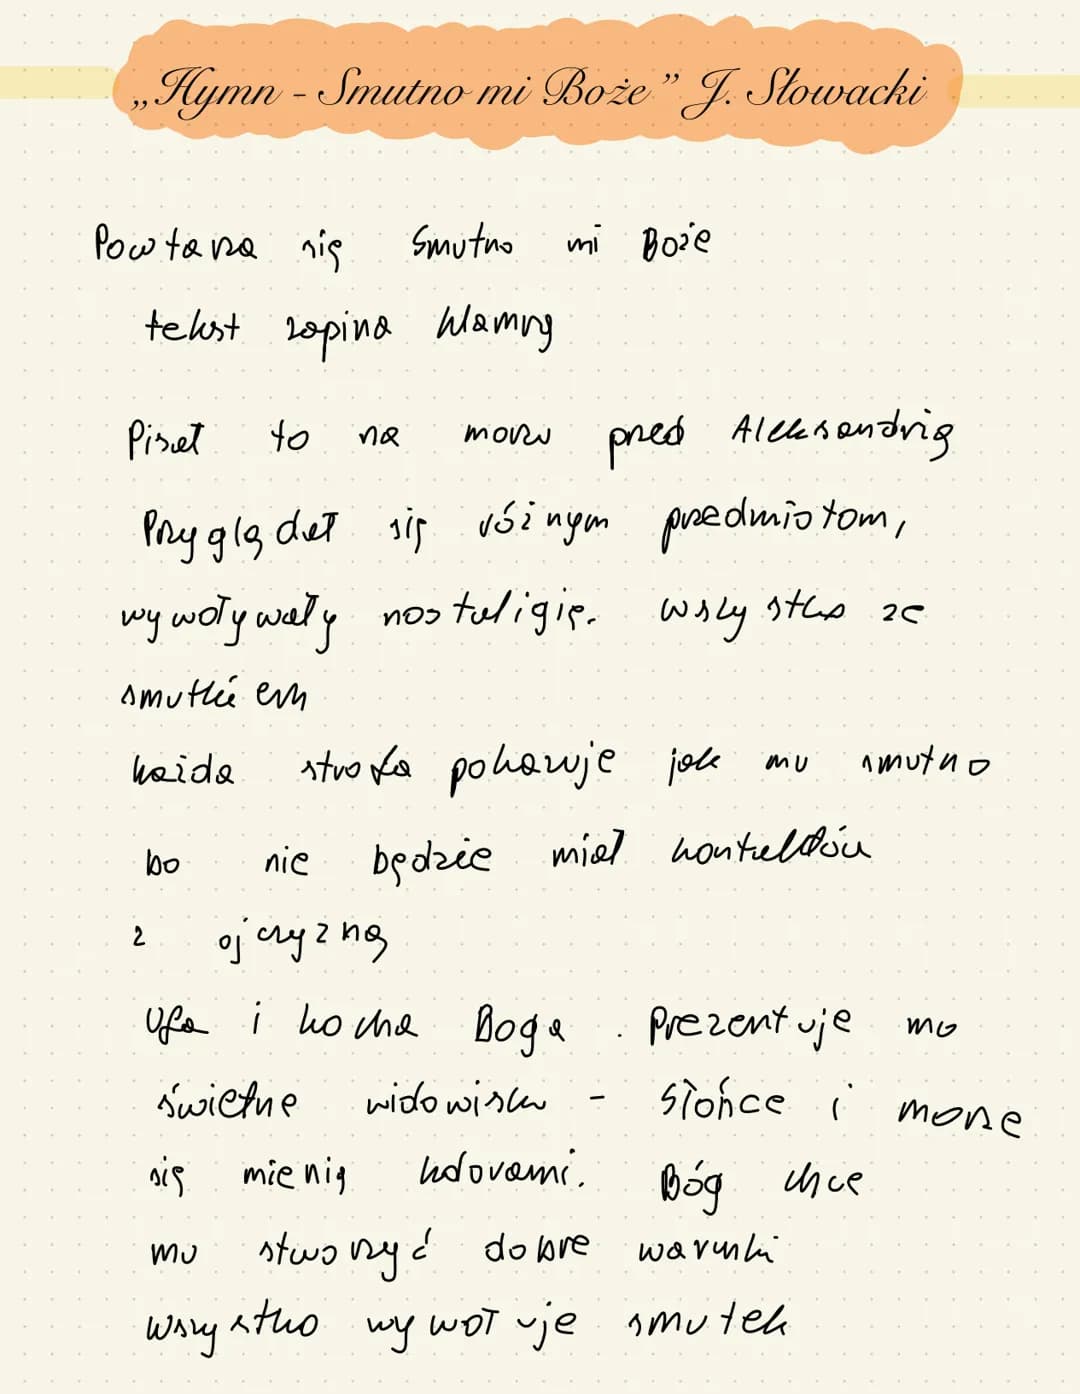 „Hymn - Smutno mi Boże” J. Słowacki
Powtarza się Smutno mi Boże
tekst zapina klamrą
Pisał to na morzu przed Aleksandrią
Przyglądał się różnym przedmiotom,
wywoływały nostaligię. wszystko ze
smutkiem
każda strofa pokazuje jak mu smutno
bo nie będzie miał kontaktów
z ojczyzną
Ufa i kocha Boga. Prezentuje mu
świetne widowisko - Słońce i morze
się mienią kolorami. Bóg chce
mu stworzyć dobre warunki
wszystko wywołuje smutek